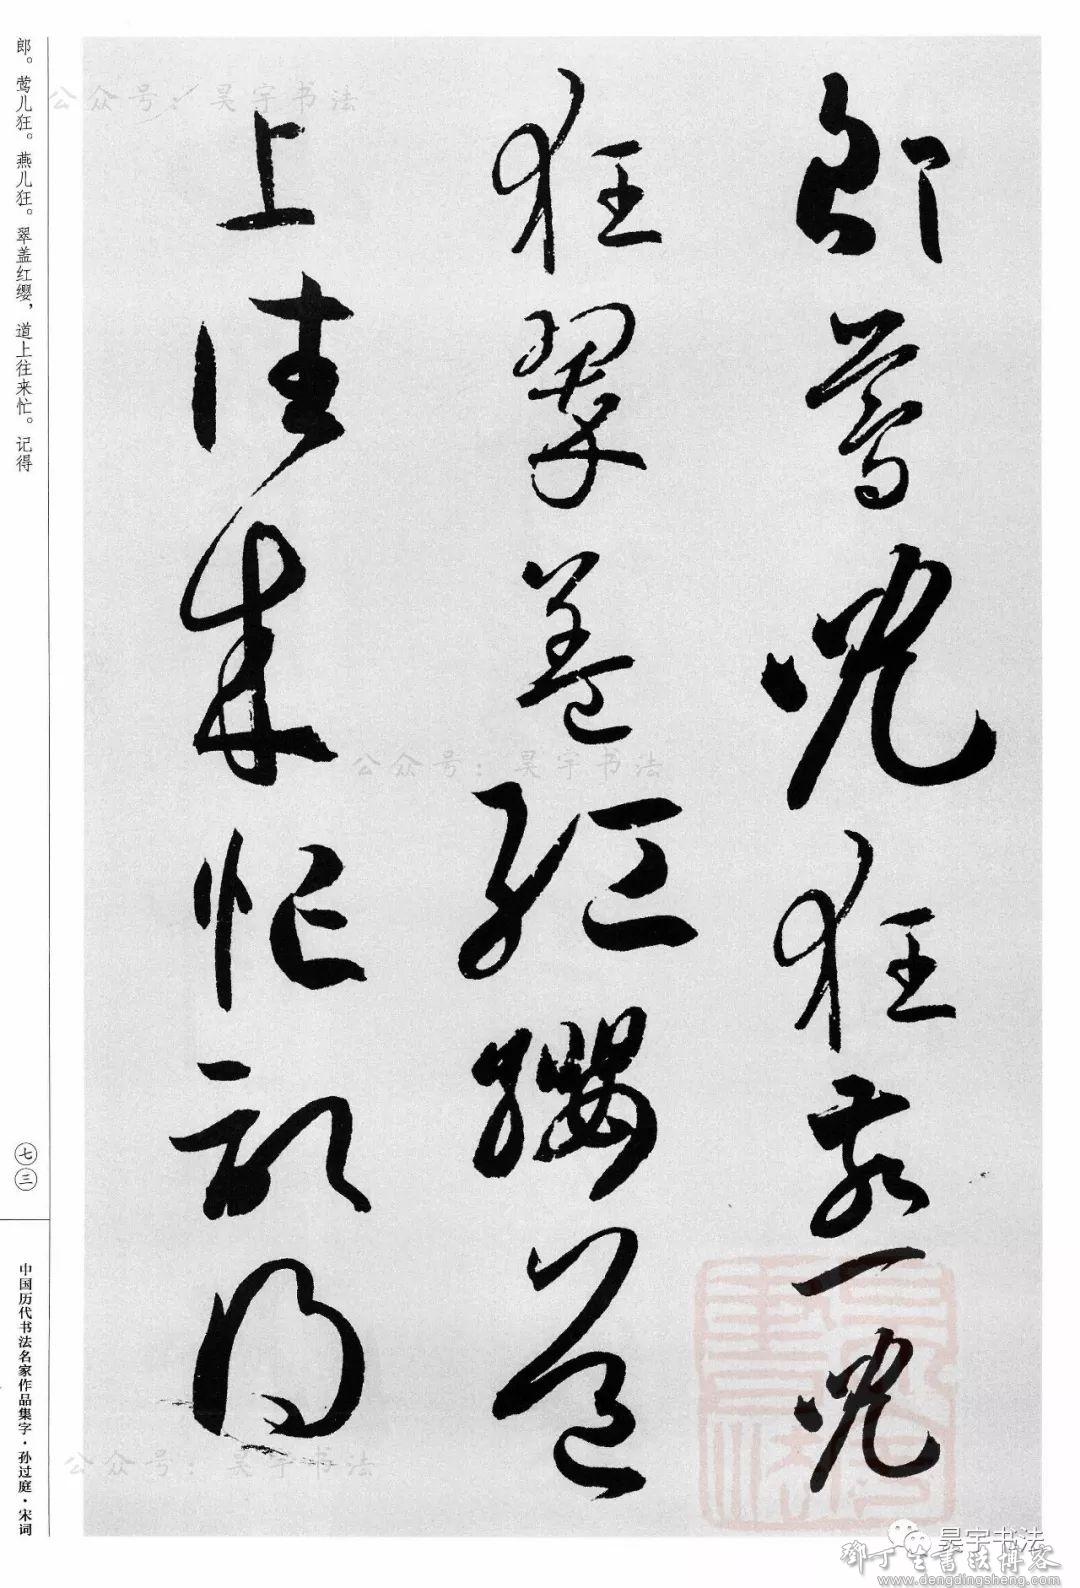 郎莺儿狂燕儿
狂翠盖红缨道
上往来忙记得
郎。莺儿狂。燕儿狂。翠盖红缨，道上往来忙。记得
七三
中国历代书法名家作品集字·孙过庭·宋词
公众号：昊宇书法
公众号：昊宇书法
公众号：昊宇书法
昊宇书法
邓丁生书法博客
www.dengdingsheng.com